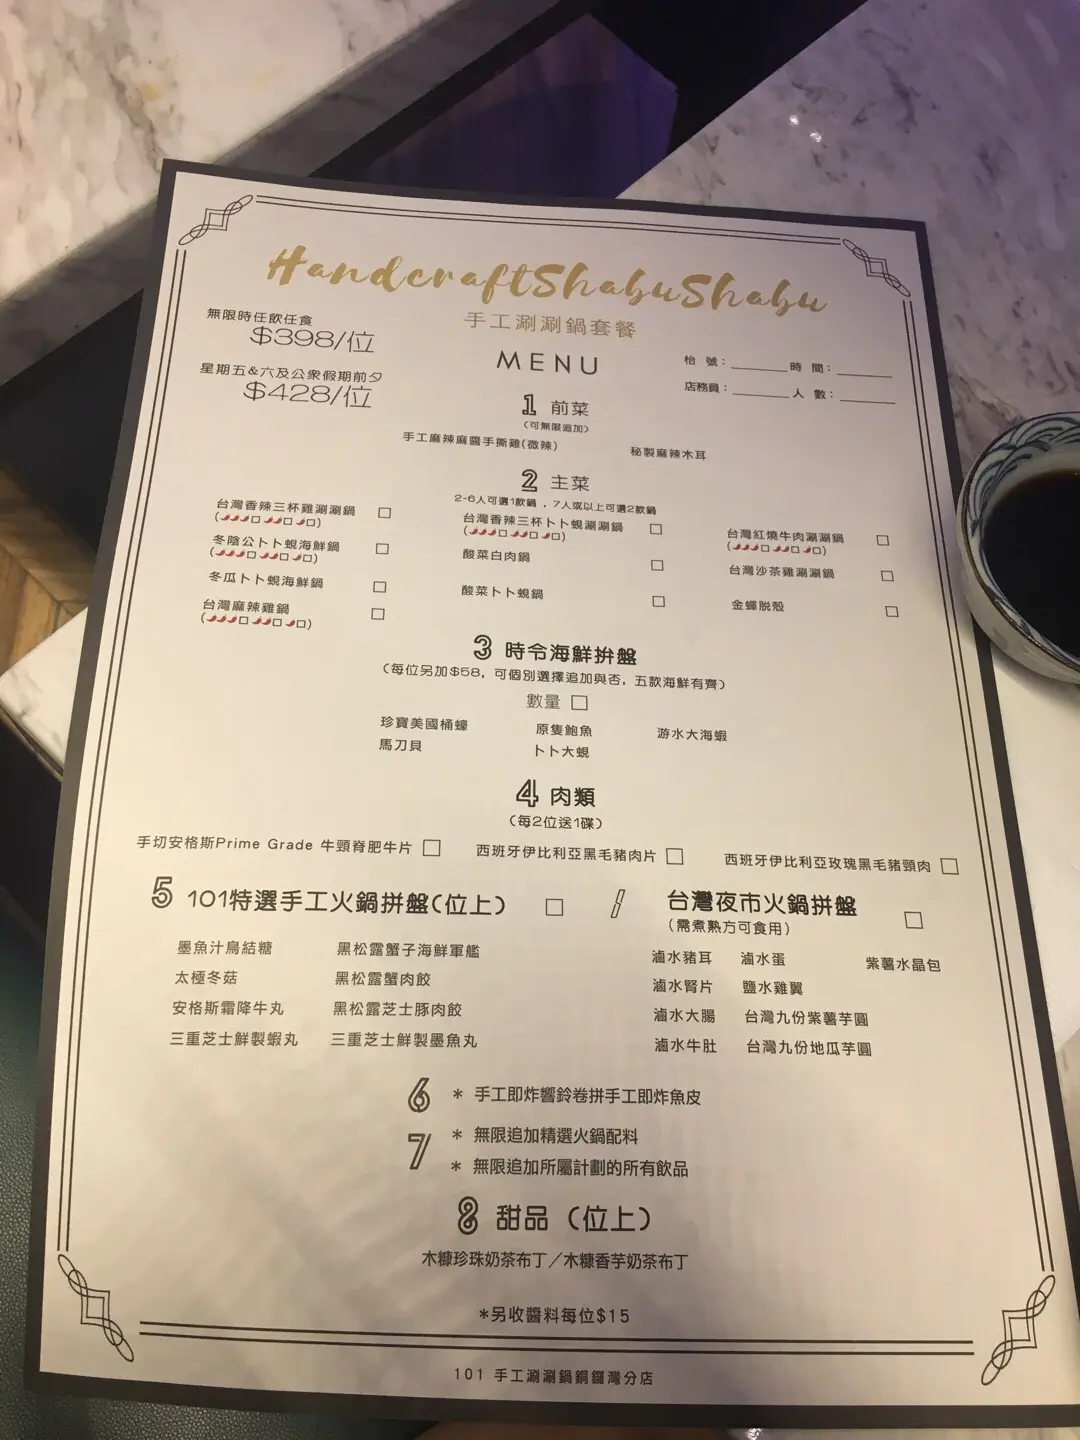 HandcraftShabuShabu
手工涮涮鍋套餐
MENU
無限時任飲任食
$398/位
星期五&六及公眾假期前夕
$428/位
枱 號：______ 時 間：______
店務員：______ 人 數：______
1 前菜
（可無限追加）
手工麻辣麻醬手撕雞(微辣) 秘製麻辣木耳
2 主菜
2-6人可選1款鍋 ，7人或以上可選2款鍋
台灣香辣三杯雞涮涮鍋 □ 台灣香辣三杯卜卜蜆涮涮鍋 □ 台灣紅燒牛肉涮涮鍋 □
(🌶🌶🌶□ 🌶🌶□ 🌶□) (🌶🌶🌶□ 🌶🌶□ 🌶□) (🌶🌶🌶□ 🌶🌶□ 🌶□)
冬陰公卜卜蜆海鮮鍋 □ 酸菜白肉鍋 □ 台灣沙茶雞涮涮鍋 □
(🌶🌶🌶□ 🌶🌶□ 🌶□)
冬瓜卜卜蜆海鮮鍋 □ 酸菜卜卜蜆鍋 □ 金蟬脱殼 □
台灣麻辣雞鍋 □
(🌶🌶🌶□ 🌶🌶□ 🌶□)
3 時令海鮮拚盤
（每位另加$58，可個別選擇追加與否，五款海鮮有齊）
數量 □
珍寶美國桶蠔 原隻鮑魚 游水大海蝦
馬刀貝 卜卜大蜆
4 肉類
（每2位送1碟）
手切安格斯Prime Grade 牛頸脊肥牛片 □ 西班牙伊比利亞黑毛豬肉片 □ 西班牙伊比利亞玫瑰黑毛豬頸肉 □
5 101特選手工火鍋拼盤(位上) □ / 台灣夜市火鍋拼盤 □
（需煮熟方可食用）
墨魚汁鳥結糖 黑松露蟹子海鮮軍艦 滷水豬耳 滷水蛋 紫薯水晶包
太極冬菇 黑松露蟹肉餃 滷水腎片 鹽水雞翼
安格斯霜降牛丸 黑松露芝士豚肉餃 滷水大腸 台灣九份紫薯芋圓
三重芝士鮮製蝦丸 三重芝士鮮製墨魚丸 滷水牛肚 台灣九份地瓜芋圓
6 * 手工即炸響鈴卷拼手工即炸魚皮
7 * 無限追加精選火鍋配料
* 無限追加所屬計劃的所有飲品
8 甜品（位上）
木糠珍珠奶茶布丁／木糠香芋奶茶布丁
*另收醬料每位$15
101 手工涮涮鍋銅鑼灣分店